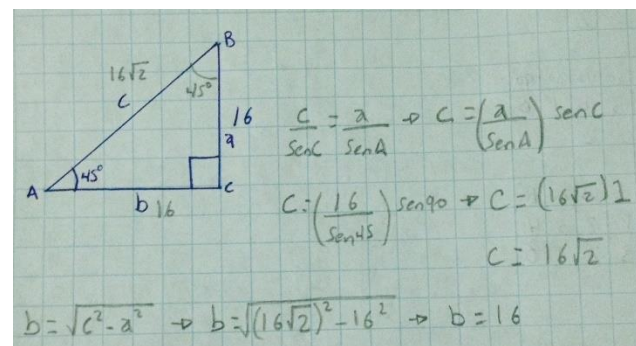 B
16√2
45°
c
16
a
A
45°
b 16
C
c/senC = a/senA → c = (a/senA) senC
c = (16/sen45) sen90 → c = (16√2)1
c = 16√2
b = √(c² - a²) → b = √((16√2)² - 16²) → b = 16